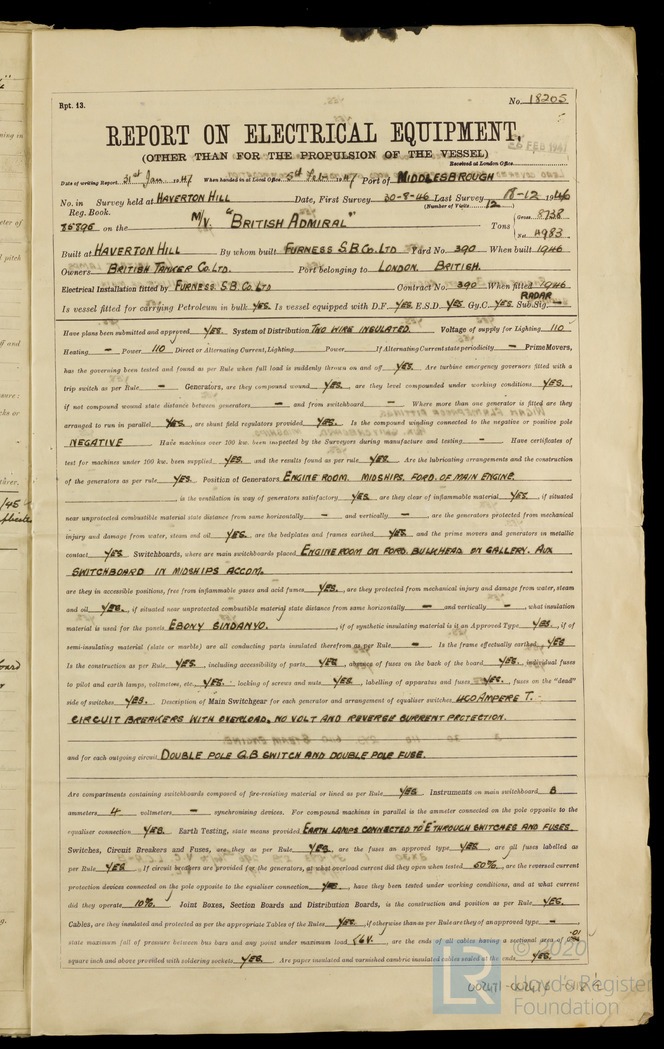 Rpt. 13.
No. 18205
REPORT ON ELECTRICAL EQUIPMENT.
(OTHER THAN FOR THE PROPULSION OF THE VESSEL)
26 FEB 1947
Received at London Office
Date of writing Report 31st Jan 1947 When handed in at Local Office 5th Feb 1947 Port of MIDDLESBROUGH
No. in Survey held at HAVERTON HILL Date, First Survey 30-8-46 Last Survey 18-12 1946
Reg. Book. (Number of Visits 12)
85805 on the M/V. "BRITISH ADMIRAL" Tons Gross 8738
Net 4983
Built at HAVERTON HILL By whom built FURNESS S.B. Co. LTD Yard No. 390 When built 1946
Owners BRITISH TANKER CO. LTD. Port belonging to LONDON. BRITISH.
Electrical Installation fitted by FURNESS S.B. CO. LTD Contract No. 390 When fitted 1946
RADAR
Is vessel fitted for carrying Petroleum in bulk YES. Is vessel equipped with D.F. YES. E.S.D. YES Gy.C. YES Sub.Sig. —
Have plans been submitted and approved YES. System of Distribution TWO WIRE INSULATED. Voltage of supply for Lighting 110
Heating — Power 110 Direct or Alternating Current, Lighting Power If Alternating Current state periodicity — Prime Movers,
has the governing been tested and found as per Rule when full load is suddenly thrown on and off YES. Are turbine emergency governors fitted with a
trip switch as per Rule — Generators, are they compound wound YES, are they level compounded under working conditions YES.,
if not compound wound state distance between generators — and from switchboard — Where more than one generator is fitted are they
arranged to run in parallel YES, are shunt field regulators provided YES. Is the compound winding connected to the negative or positive pole
NEGATIVE Have machines over 100 kw. been inspected by the Surveyors during manufacture and testing — Have certificates of
test for machines under 100 kw. been supplied YES. and the results found as per rule YES. Are the lubricating arrangements and the construction
of the generators as per rule YES. Position of Generators ENGINE ROOM. MIDSHIPS. FORD. OF MAIN ENGINE.
is the ventilation in way of generators satisfactory YES. are they clear of inflammable material YES, if situated
near unprotected combustible material state distance from same horizontally — and vertically —, are the generators protected from mechanical
injury and damage from water, steam and oil YES., are the bedplates and frames earthed YES and the prime movers and generators in metallic
contact YES. Switchboards, where are main switchboards placed ENGINE ROOM ON FORD. BULKHEAD ON GALLERY. AUX
SWITCHBOARD IN MIDSHIPS ACCOM.
are they in accessible positions, free from inflammable gases and acid fumes YES., are they protected from mechanical injury and damage from water, steam
and oil YES., if situated near unprotected combustible material state distance from same horizontally — and vertically —, what insulation
material is used for the panels EBONY SINDANYO., if of synthetic insulating material is it an Approved Type YES., if of
semi-insulating material (slate or marble) are all conducting parts insulated therefrom as per Rule — Is the frame effectually earthed YES
Is the construction as per Rule YES., including accessibility of parts YES, absence of fuses on the back of the board YES., individual fuses
to pilot and earth lamps, voltmeters, etc. YES. locking of screws and nuts YES, labelling of apparatus and fuses YES., fuses on the "dead"
side of switches YES. Description of Main Switchgear for each generator and arrangement of equaliser switches 400 AMPERE T.
CIRCUIT BREAKERS WITH OVERLOAD, NO VOLT AND REVERSE CURRENT PROTECTION.
and for each outgoing circuit DOUBLE POLE Q.B SWITCH AND DOUBLE POLE FUSE.
Are compartments containing switchboards composed of fire-resisting material or lined as per Rule YES Instruments on main switchboard 8
ammeters 4 voltmeters — synchronising devices. For compound machines in parallel is the ammeter connected on the pole opposite to the
equaliser connection YES. Earth Testing, state means provided EARTH LAMPS CONNECTED TO "E" THROUGH SWITCHES AND FUSES
Switches, Circuit Breakers and Fuses, are they as per Rule YES, are the fuses an approved type YES are all fuses labelled as
per Rule YES If circuit breakers are provided for the generators, at what overload current did they open when tested 50%, are the reversed current
protection devices connected on the pole opposite to the equaliser connection YES., have they been tested under working conditions, and at what current
did they operate 10%. Joint Boxes, Section Boards and Distribution Boards, is the construction and position as per Rule YES.
Cables, are they insulated and protected as per the appropriate Tables of the Rules YES., if otherwise than as per Rule are they of an approved type —,
state maximum fall of pressure between bus bars and any point under maximum load <6V. are the ends of all cables having a sectional area of .01
square inch and above provided with soldering sockets YES. Are paper insulated and varnished cambric insulated cables sealed at the ends YES.
© 2020
LR Lloyd's Register
Foundation